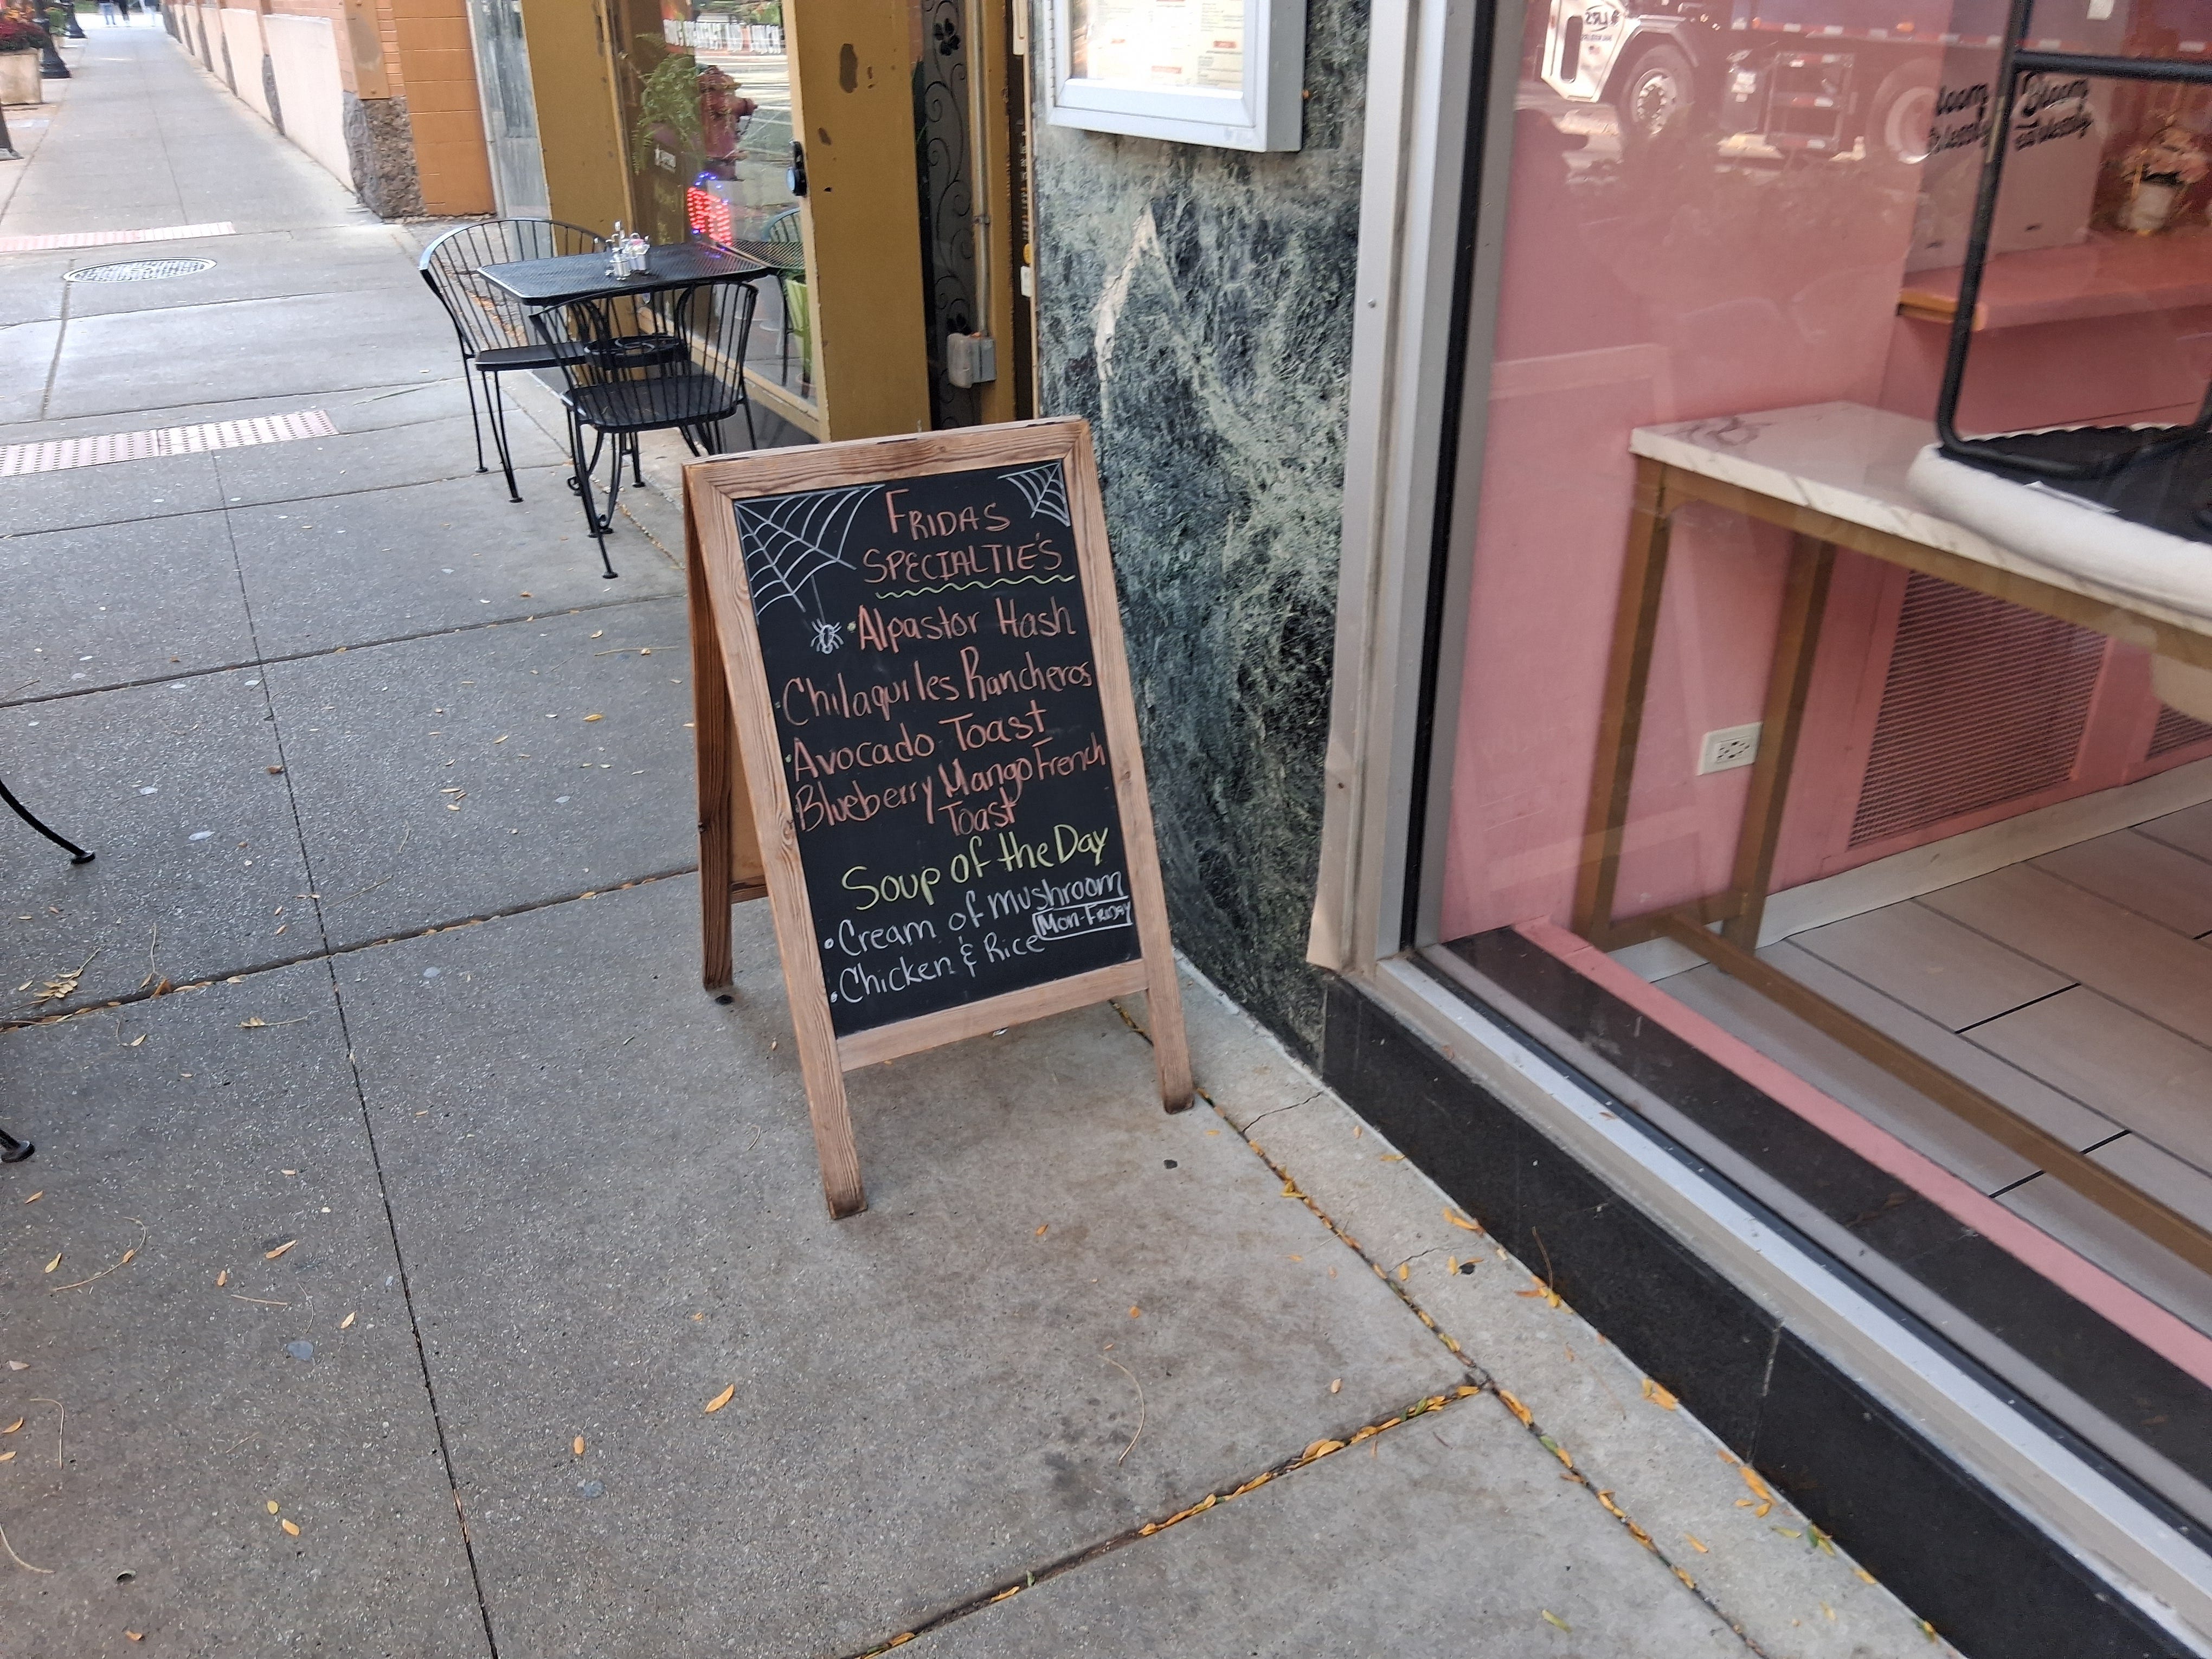 FRIDAS
SPECIALTIE'S
• Alpastor Hash
• Chilaquiles Rancheros
• Avocado Toast
• Blueberry Mango French
Toast
Soup of the Day
• Cream of mushroom
Mon-FRIDAY
• Chicken & Rice
LRS
Bloom